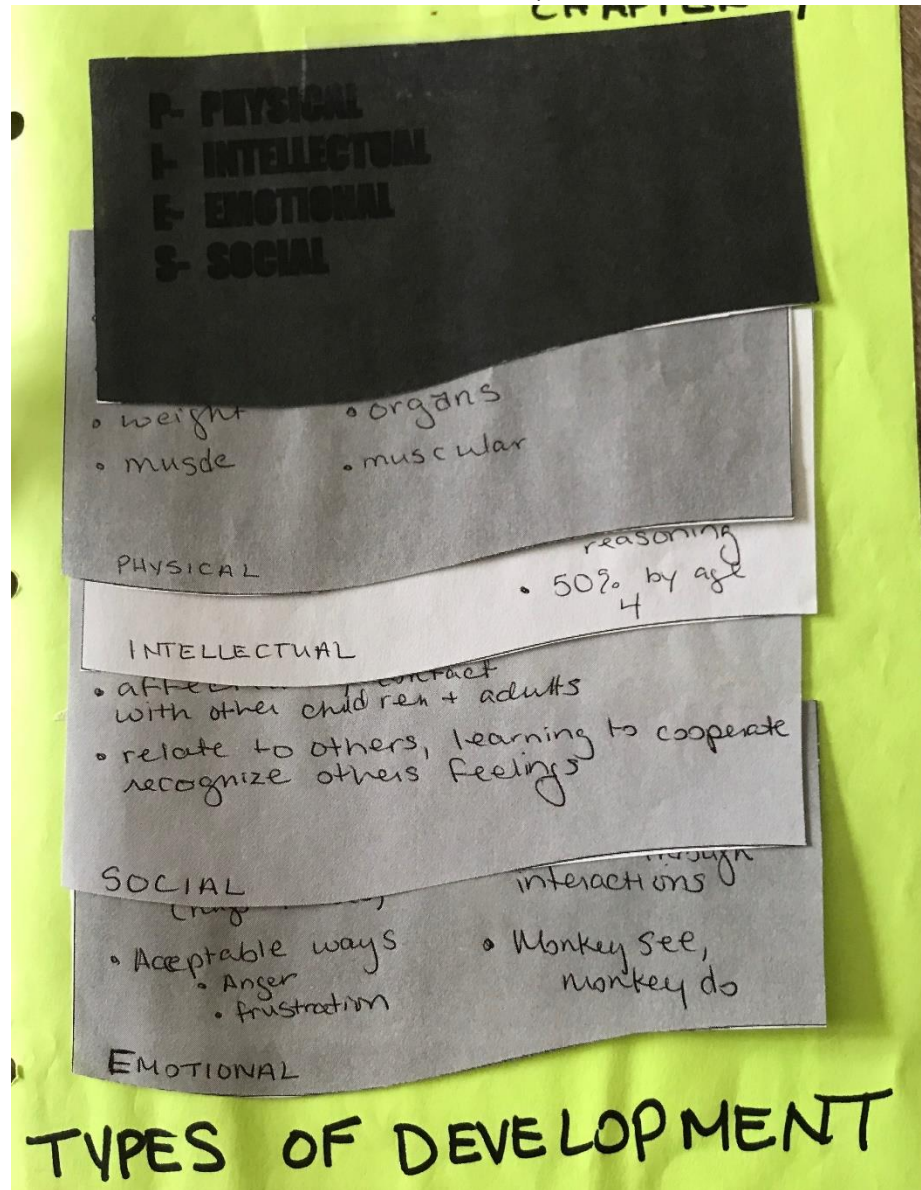 CHAPTER 1
P- PHYSICAL
I- INTELLECTUAL
E- EMOTIONAL
S- SOCIAL
• weight • organs
• musde • muscular
PHYSICAL
reasoning
• 50% by age
4
INTELLECTUAL
• contact
with other children + adults
• relate to others, learning to cooperate
recognize others feelings
SOCIAL
through
interactions
• Acceptable ways
• Anger
• frustration
• Monkey see,
monkey do
EMOTIONAL
TYPES OF DEVELOPMENT